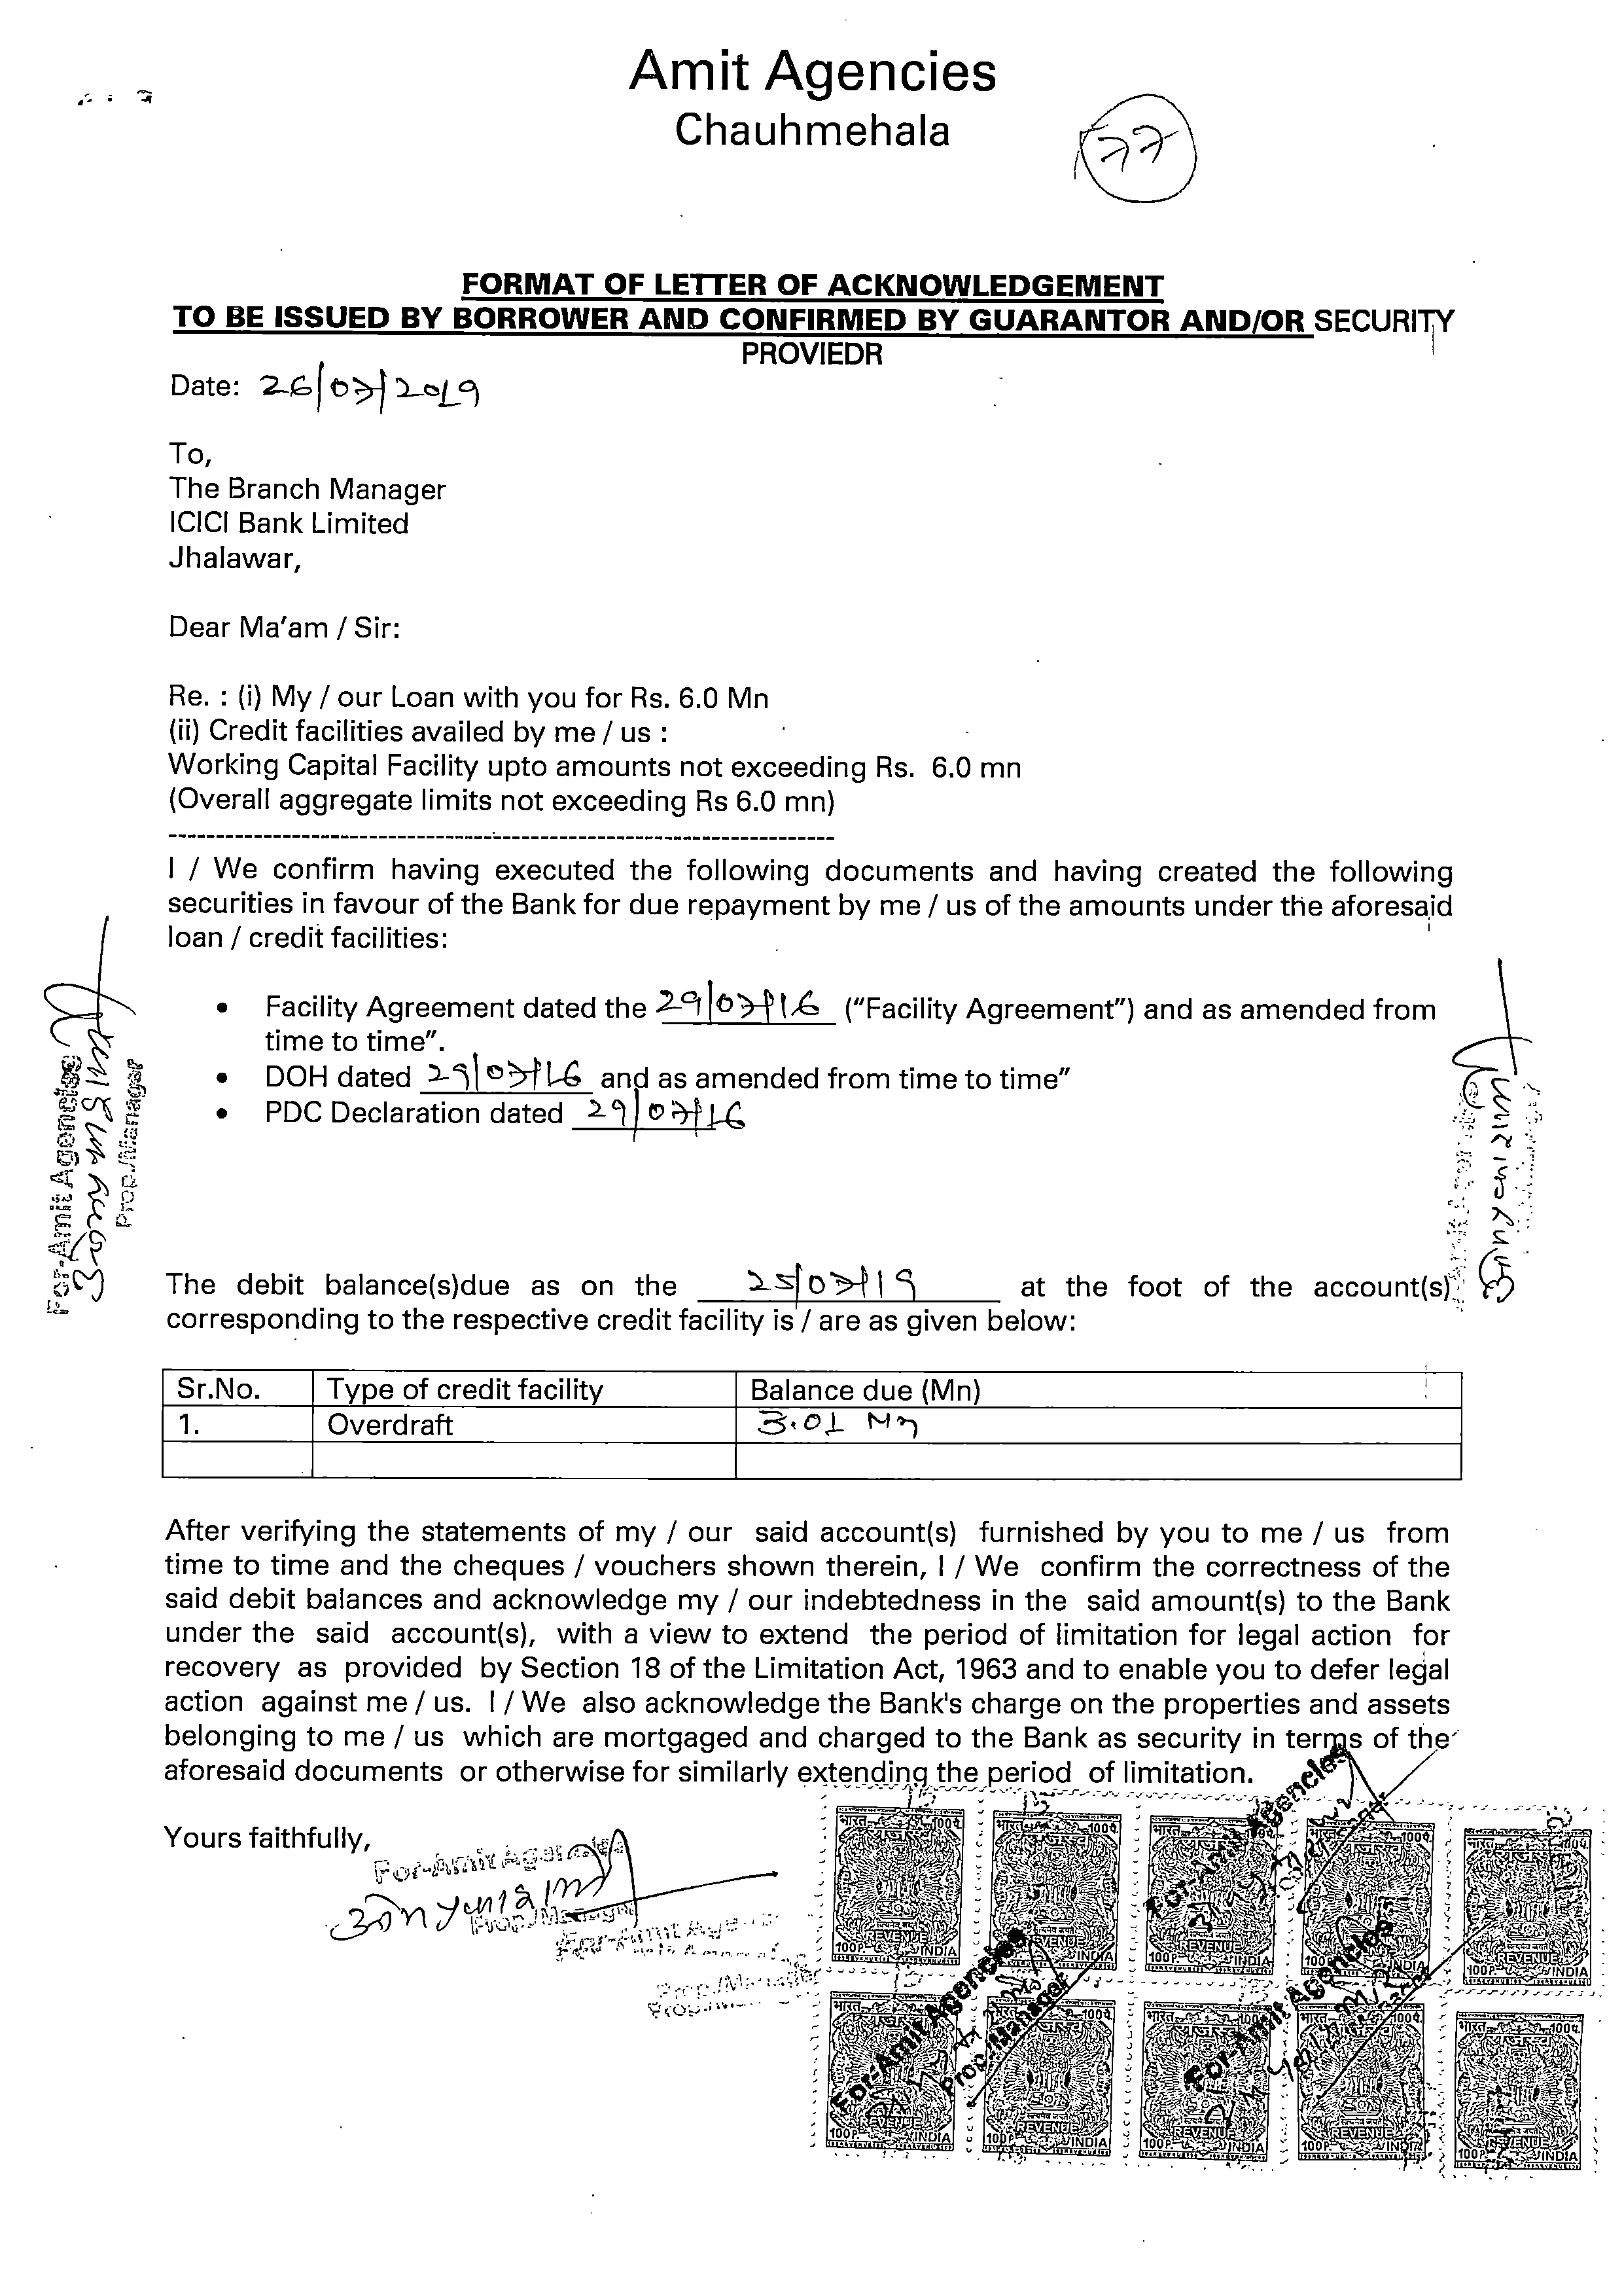 Amit Agencies
Chauhmehala
77
FORMAT OF LETTER OF ACKNOWLEDGEMENT
TO BE ISSUED BY BORROWER AND CONFIRMED BY GUARANTOR AND/OR SECURITY
PROVIEDR
Date: 26/07/2019
To,
The Branch Manager
ICICI Bank Limited
Jhalawar,
Dear Ma'am / Sir:
Re. : (i) My / our Loan with you for Rs. 6.0 Mn
(ii) Credit facilities availed by me / us :
Working Capital Facility upto amounts not exceeding Rs. 6.0 mn
(Overall aggregate limits not exceeding Rs 6.0 mn)
----------------------------------------------------------------------
I / We confirm having executed the following documents and having created the following
securities in favour of the Bank for due repayment by me / us of the amounts under the aforesaid
loan / credit facilities:
• Facility Agreement dated the 29/07/16 ("Facility Agreement") and as amended from
time to time".
• DOH dated 29/07/16 and as amended from time to time"
• PDC Declaration dated 29/07/16
For-Amit Agencies
Prop./Manager
The debit balance(s)due as on the 25/07/19 at the foot of the account(s)
corresponding to the respective credit facility is / are as given below:
Sr.No. Type of credit facility Balance due (Mn)
1. Overdraft 3.01 Mn
After verifying the statements of my / our said account(s) furnished by you to me / us from
time to time and the cheques / vouchers shown therein, I / We confirm the correctness of the
said debit balances and acknowledge my / our indebtedness in the said amount(s) to the Bank
under the said account(s), with a view to extend the period of limitation for legal action for
recovery as provided by Section 18 of the Limitation Act, 1963 and to enable you to defer legal
action against me / us. I / We also acknowledge the Bank's charge on the properties and assets
belonging to me / us which are mortgaged and charged to the Bank as security in terms of the
aforesaid documents or otherwise for similarly extending the period of limitation.
Yours faithfully,
For-Amit Agencies
Prop./Manager
For-Amit Agencies
Prop./Manager
भारत 100प.
REVENUE
100P. INDIA
For-Amit Agencies
For-Amit Agencies
Prop./Manager
For-Amit Agencies